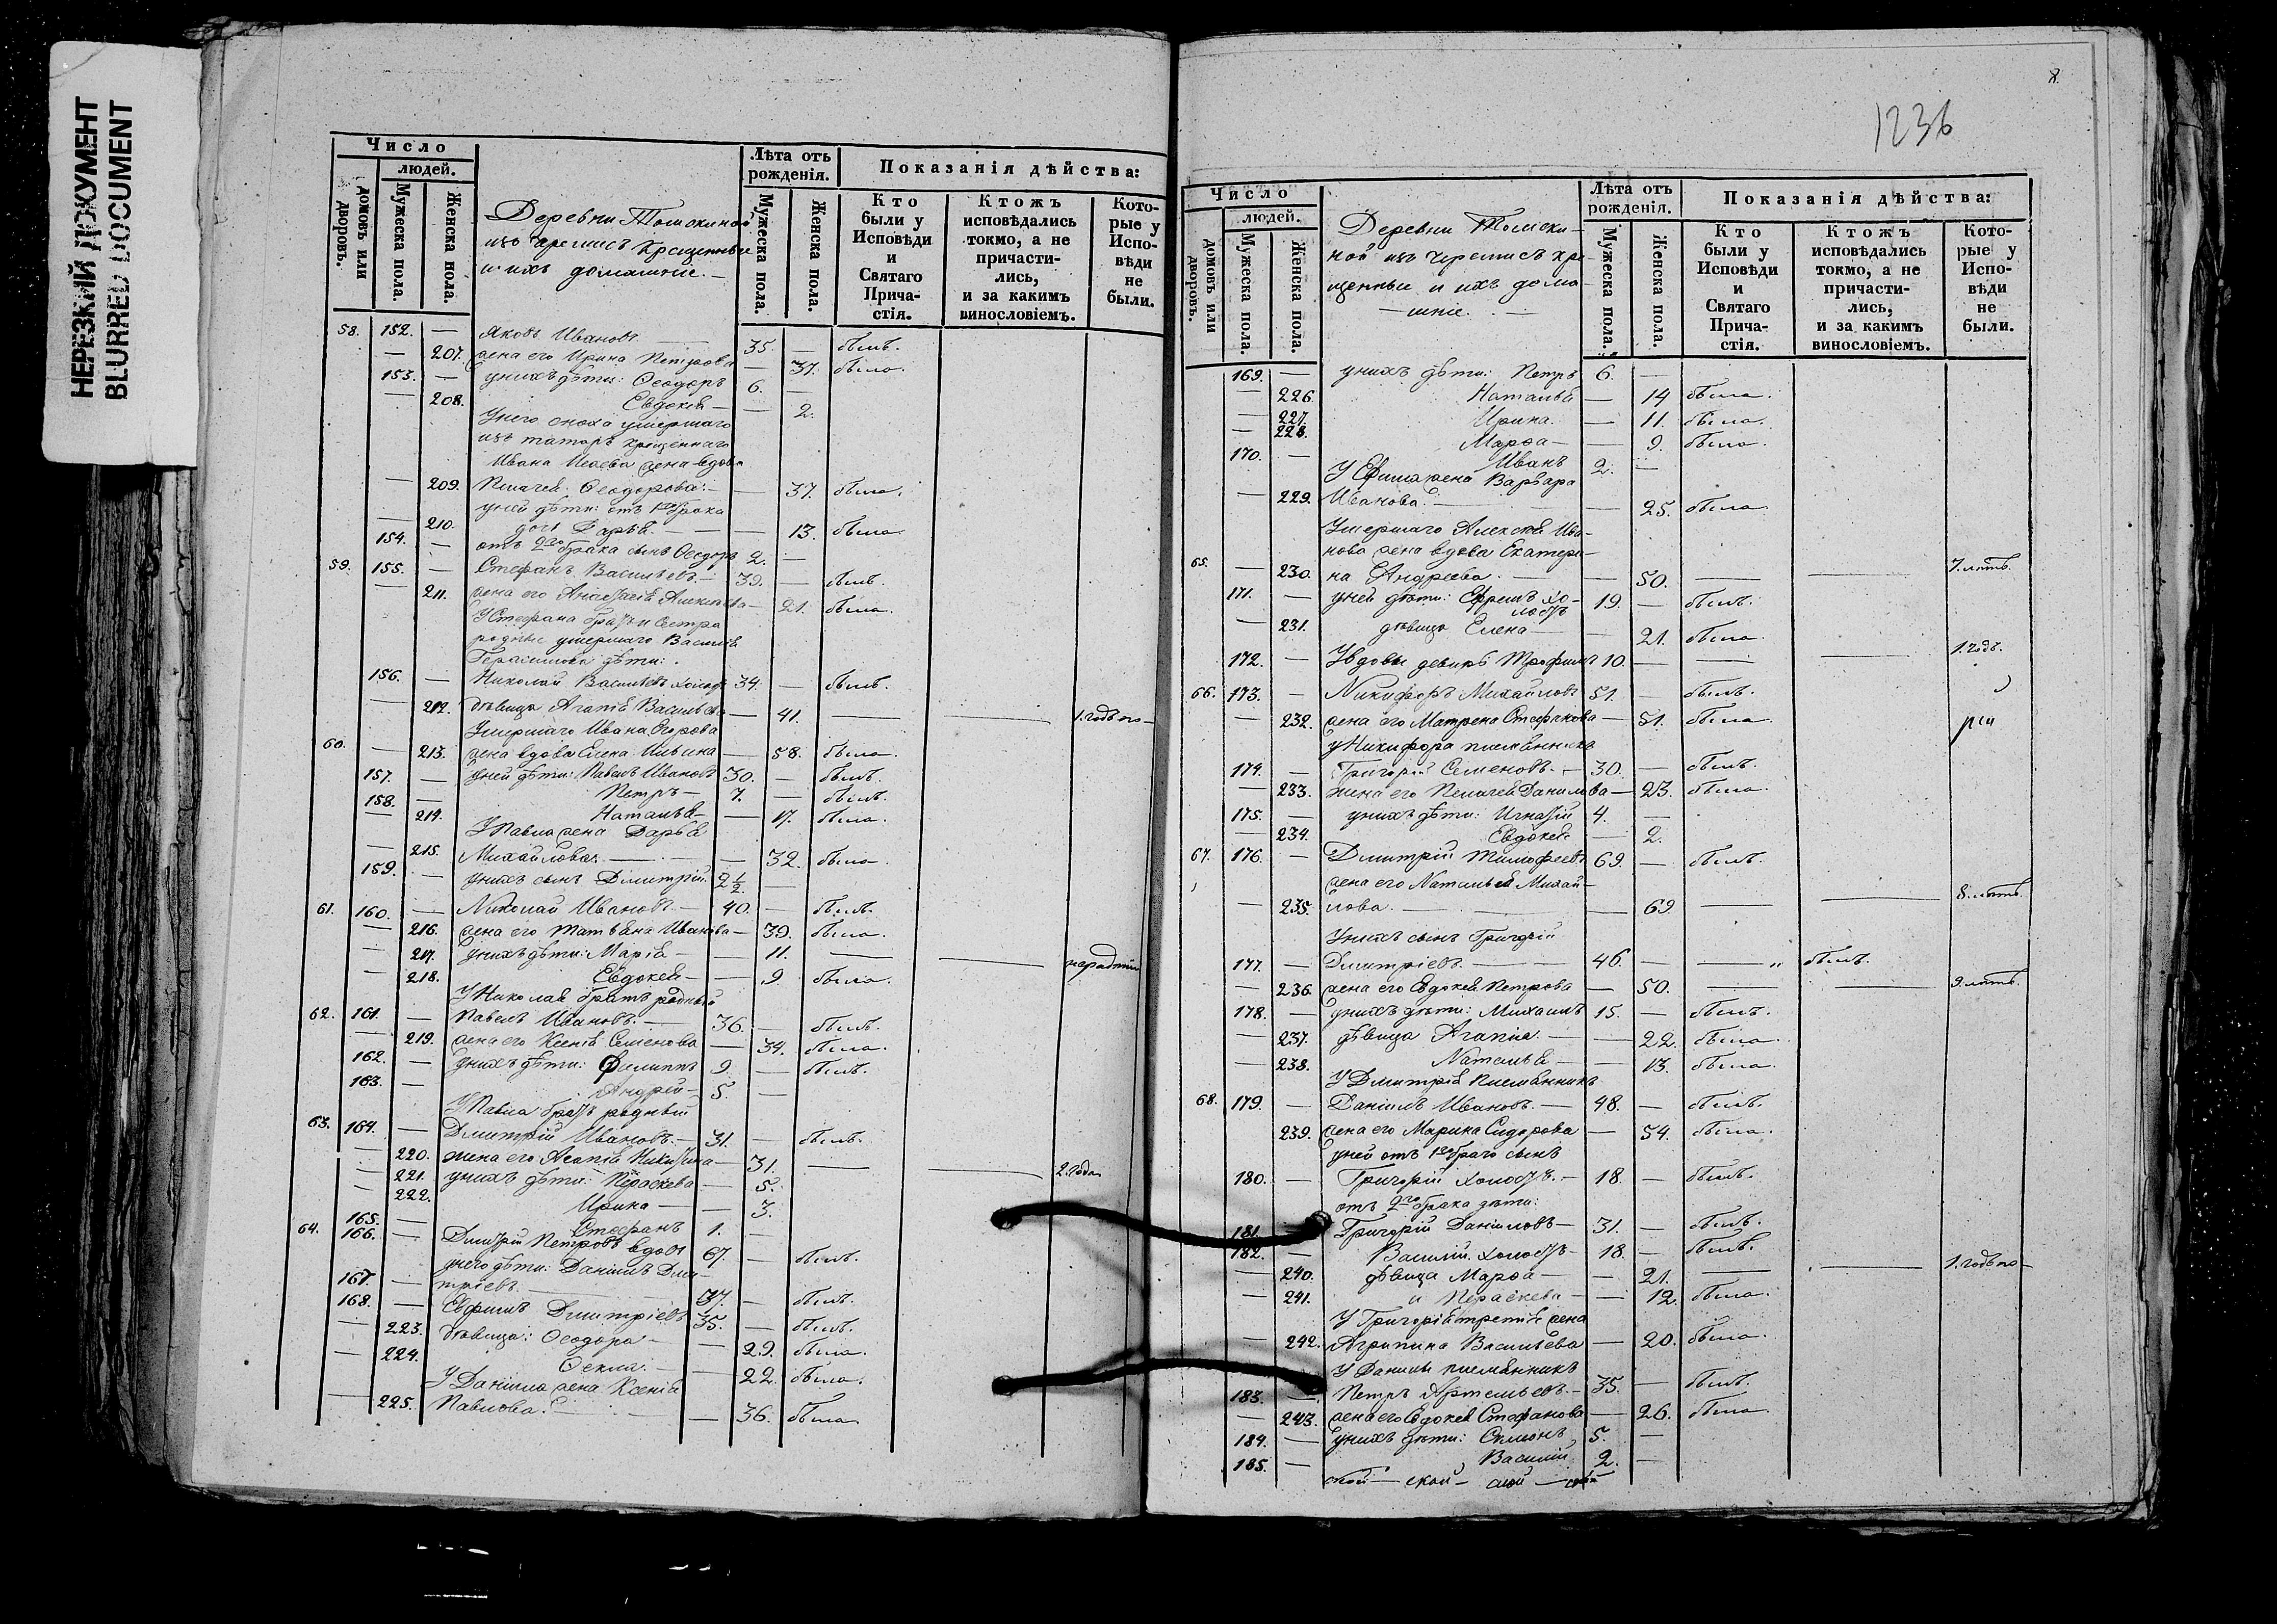 НЕРЕЗКИЙ ДОКУМЕНТ
BLURRED DOCUMENT
Число
людей.
домовъ или дворовъ.
Мужеска пола.
Женска пола.
Деревни
изъ черемисъ крещенные
и ихъ домашніе.
Лѣта отъ рожденія.
Мужеска пола.
Женска пола.
Показанія дѣйства:
Кто были у Исповѣди и Святаго Прича-стія.
Ктожъ исповѣдались токмо, а не причасти-лись, и за какимъ винословіемъ.
Кото-рые у Испо-вѣди не были.
58. 152. — Яковъ Ивановъ — 35. — былъ.
— 207. жена его Ирина Петрова — 37. была.
153. — у нихъ дѣти: Ѳеодоръ 6. —
— 208. Евдокія — — 2.
У него сноха умершаго
изъ татаръ крещеннаго
Ивана жена вдова
— 209. Пелагея Ѳеодорова — — 37. была.
у ней дѣти: отъ 1го брака
— 210. дочь Дарья — — 13. была.
154. — отъ 2го брака сынъ Ѳеодоръ 2. —
59. 155. — Стефанъ Васильевъ — 39. — былъ.
— 211. жена его Анастасія Алексѣева — 21. была.
У Стефана братъ и сестра
родные умершаго Василія
Герасимова дѣти:
156. — Николай Васильевъ холостъ 34. — былъ.
— 212. дѣвица Агапія Васильева — 41. — — 1. годъ по—
Умершаго Ивана Егорова
60. — 213. жена вдова Елена Ильина — 58. была.
157. — у ней дѣти: Павелъ Ивановъ 30. — былъ.
158. — Петръ — 7. — былъ.
— 214. Наталья — — 17. была.
У Павла жена Дарья
— 215. Михайлова. — — 32. была.
159. — у нихъ сынъ Димитрій 2 1/2. —
61. 160. — Николай Ивановъ — 40. — былъ.
— 216. жена его Татьяна Иванова — 39. была.
— 217. у нихъ дѣти: Марія — — 11. — —
— 218. Евдокея — — 9 была.
У Николая братъ родный
62. 161. — Павелъ Ивановъ. — 36. — былъ.
— 219. жена его Ксенія Семенова — 34. была.
162. — у нихъ дѣти: Филиппъ 9. — былъ.
163. — Андрей — 5. —
У Павла братъ родный
63. 164. — Димитрій Ивановъ. — 31. — былъ.
— 220. жена его Агапія Никитина — 31. — — 2. года
— 221. у нихъ дѣти: Параскева — 5.
— 222. Ирина — — 3.
165. — Стефанъ 1. —
64. 166. — Димитрій Петровъ вдовъ 67. — былъ.
у него дѣти: Даніилъ Дми-
167. — тріевъ. — 37. — былъ.
168. — Евфимъ Димитріевъ 35. — былъ.
— 223. дѣвица: Ѳеодора — — 29. была.
— 224. Ѳекла. — — 22. была.
У Даніила жена Ксенія
— 225. Павлова. — — 36. была
8.
1236
Число
людей.
домовъ или дворовъ.
Мужеска пола.
Женска пола.
Деревни
ной изъ черемисъ кре-
щенные и ихъ дома-
— шніе. —
Лѣта отъ рожденія.
Мужеска пола.
Женска пола.
Показанія дѣйства:
Кто были у Исповѣди и Святаго Прича-стія.
Ктожъ исповѣдались токмо, а не причасти-лись, и за какимъ винословіемъ.
Кото-рые у Испо-вѣди не были.
169. — у нихъ дѣти: Петръ 6. —
— 226. Наталья — 14 была.
— 227. Ирина. — 11. была.
— 228. Марѳа — — 9. была.
170. — Иванъ 2. —
У Ефима жена Варвара
— 229. Иванова. — — 25. была.
Умершаго Алексѣя Ива-
нова жена вдова Екатери-
65. — 230. на Андреева. — — 50. — — 7. лѣтъ.
171. — у ней дѣти: Ефремъ хо-лостъ 19. — былъ.
— 231. дѣвица Елена — — 21. была.
172. — У вдовы деверь Трофимъ 10. — — — 1. годъ.
66. 173. — Никифоръ Михайловъ 51. — былъ.
— 232. жена его Матрена Стефанова — 51. была.
у Никифора племянникъ
174. — Григорій Семеновъ. — 30. — былъ.
— 233. жена его Пелагея Данилова — 23. была.
175. — у нихъ дѣти: Игнатій 4. —
— 234. Евдокея — 2.
67. 176. — Димитрій Тимофеевъ 69. — былъ.
жена его Наталья Михай-
— 235. лова. — — 69. — — 8. лѣтъ.
У нихъ сынъ Григорій
177. — Димитріевъ. — 46. — — былъ.
— 236. жена его Евдокея Петрова — 50. — — 9. лѣтъ.
178. — у нихъ дѣти: Михаилъ 15. — былъ.
— 237. дѣвица Агапія. — — 22. была.
— 238. Наталья — — 13. была.
У Димитрія племянникъ
68. 179. — Даніилъ Ивановъ. — 48. — былъ.
239. жена его Марина Сидорова — 54. была.
у ней отъ 1го брака сынъ
180. — Григорій холостъ. — 18. — былъ.
отъ 2го брака дѣти:
181. — Григорій Даніиловъ — 31. — былъ.
182. — Василій холостъ — 18. — былъ.
— 240. дѣвица Марѳа — — 21. — — 1. годъ по—
— 241. и Параскева — — 12. была.
У Григорія третія жена
— 242. Агрипина Васильева — 20. была.
У Данилы племянникъ
183. — Петръ Артемьевъ — 35. — былъ.
— 243. жена его Евдокея Стефанова — 26. была.
184. — у нихъ дѣти: Симеонъ 5. —
185. — Василій 2. —